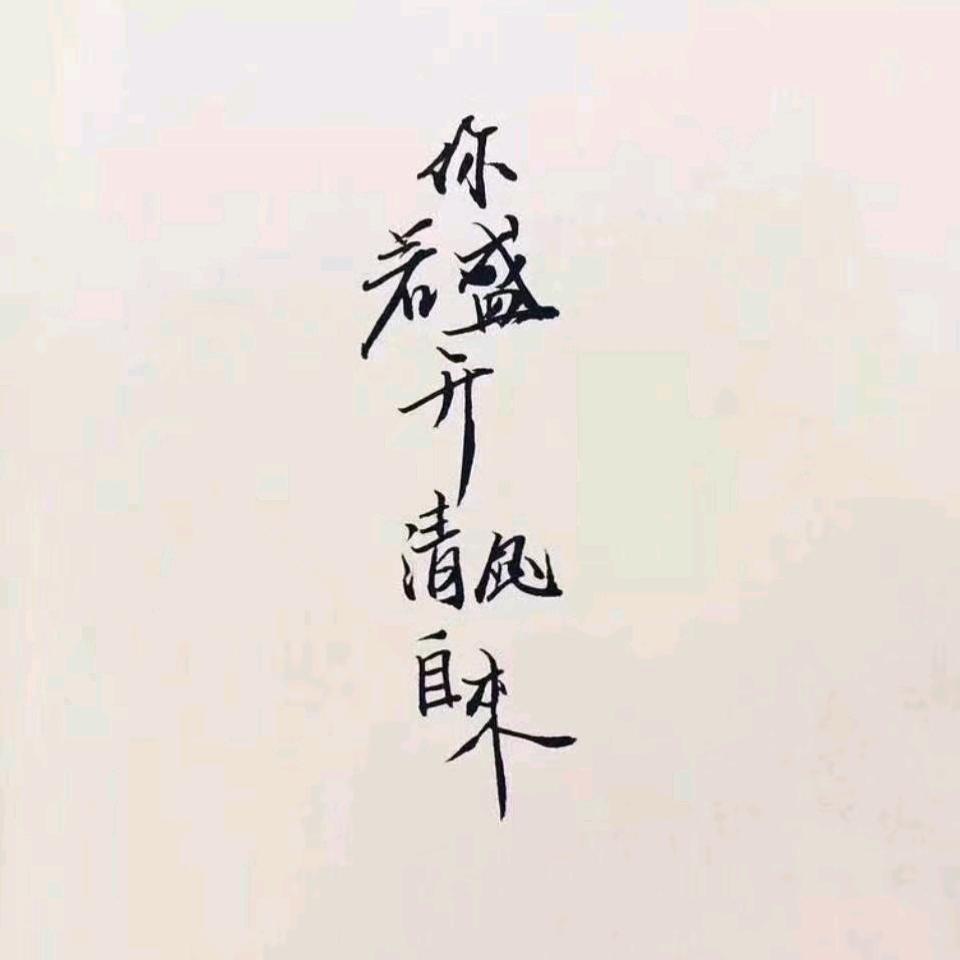 你若盛开清風自来